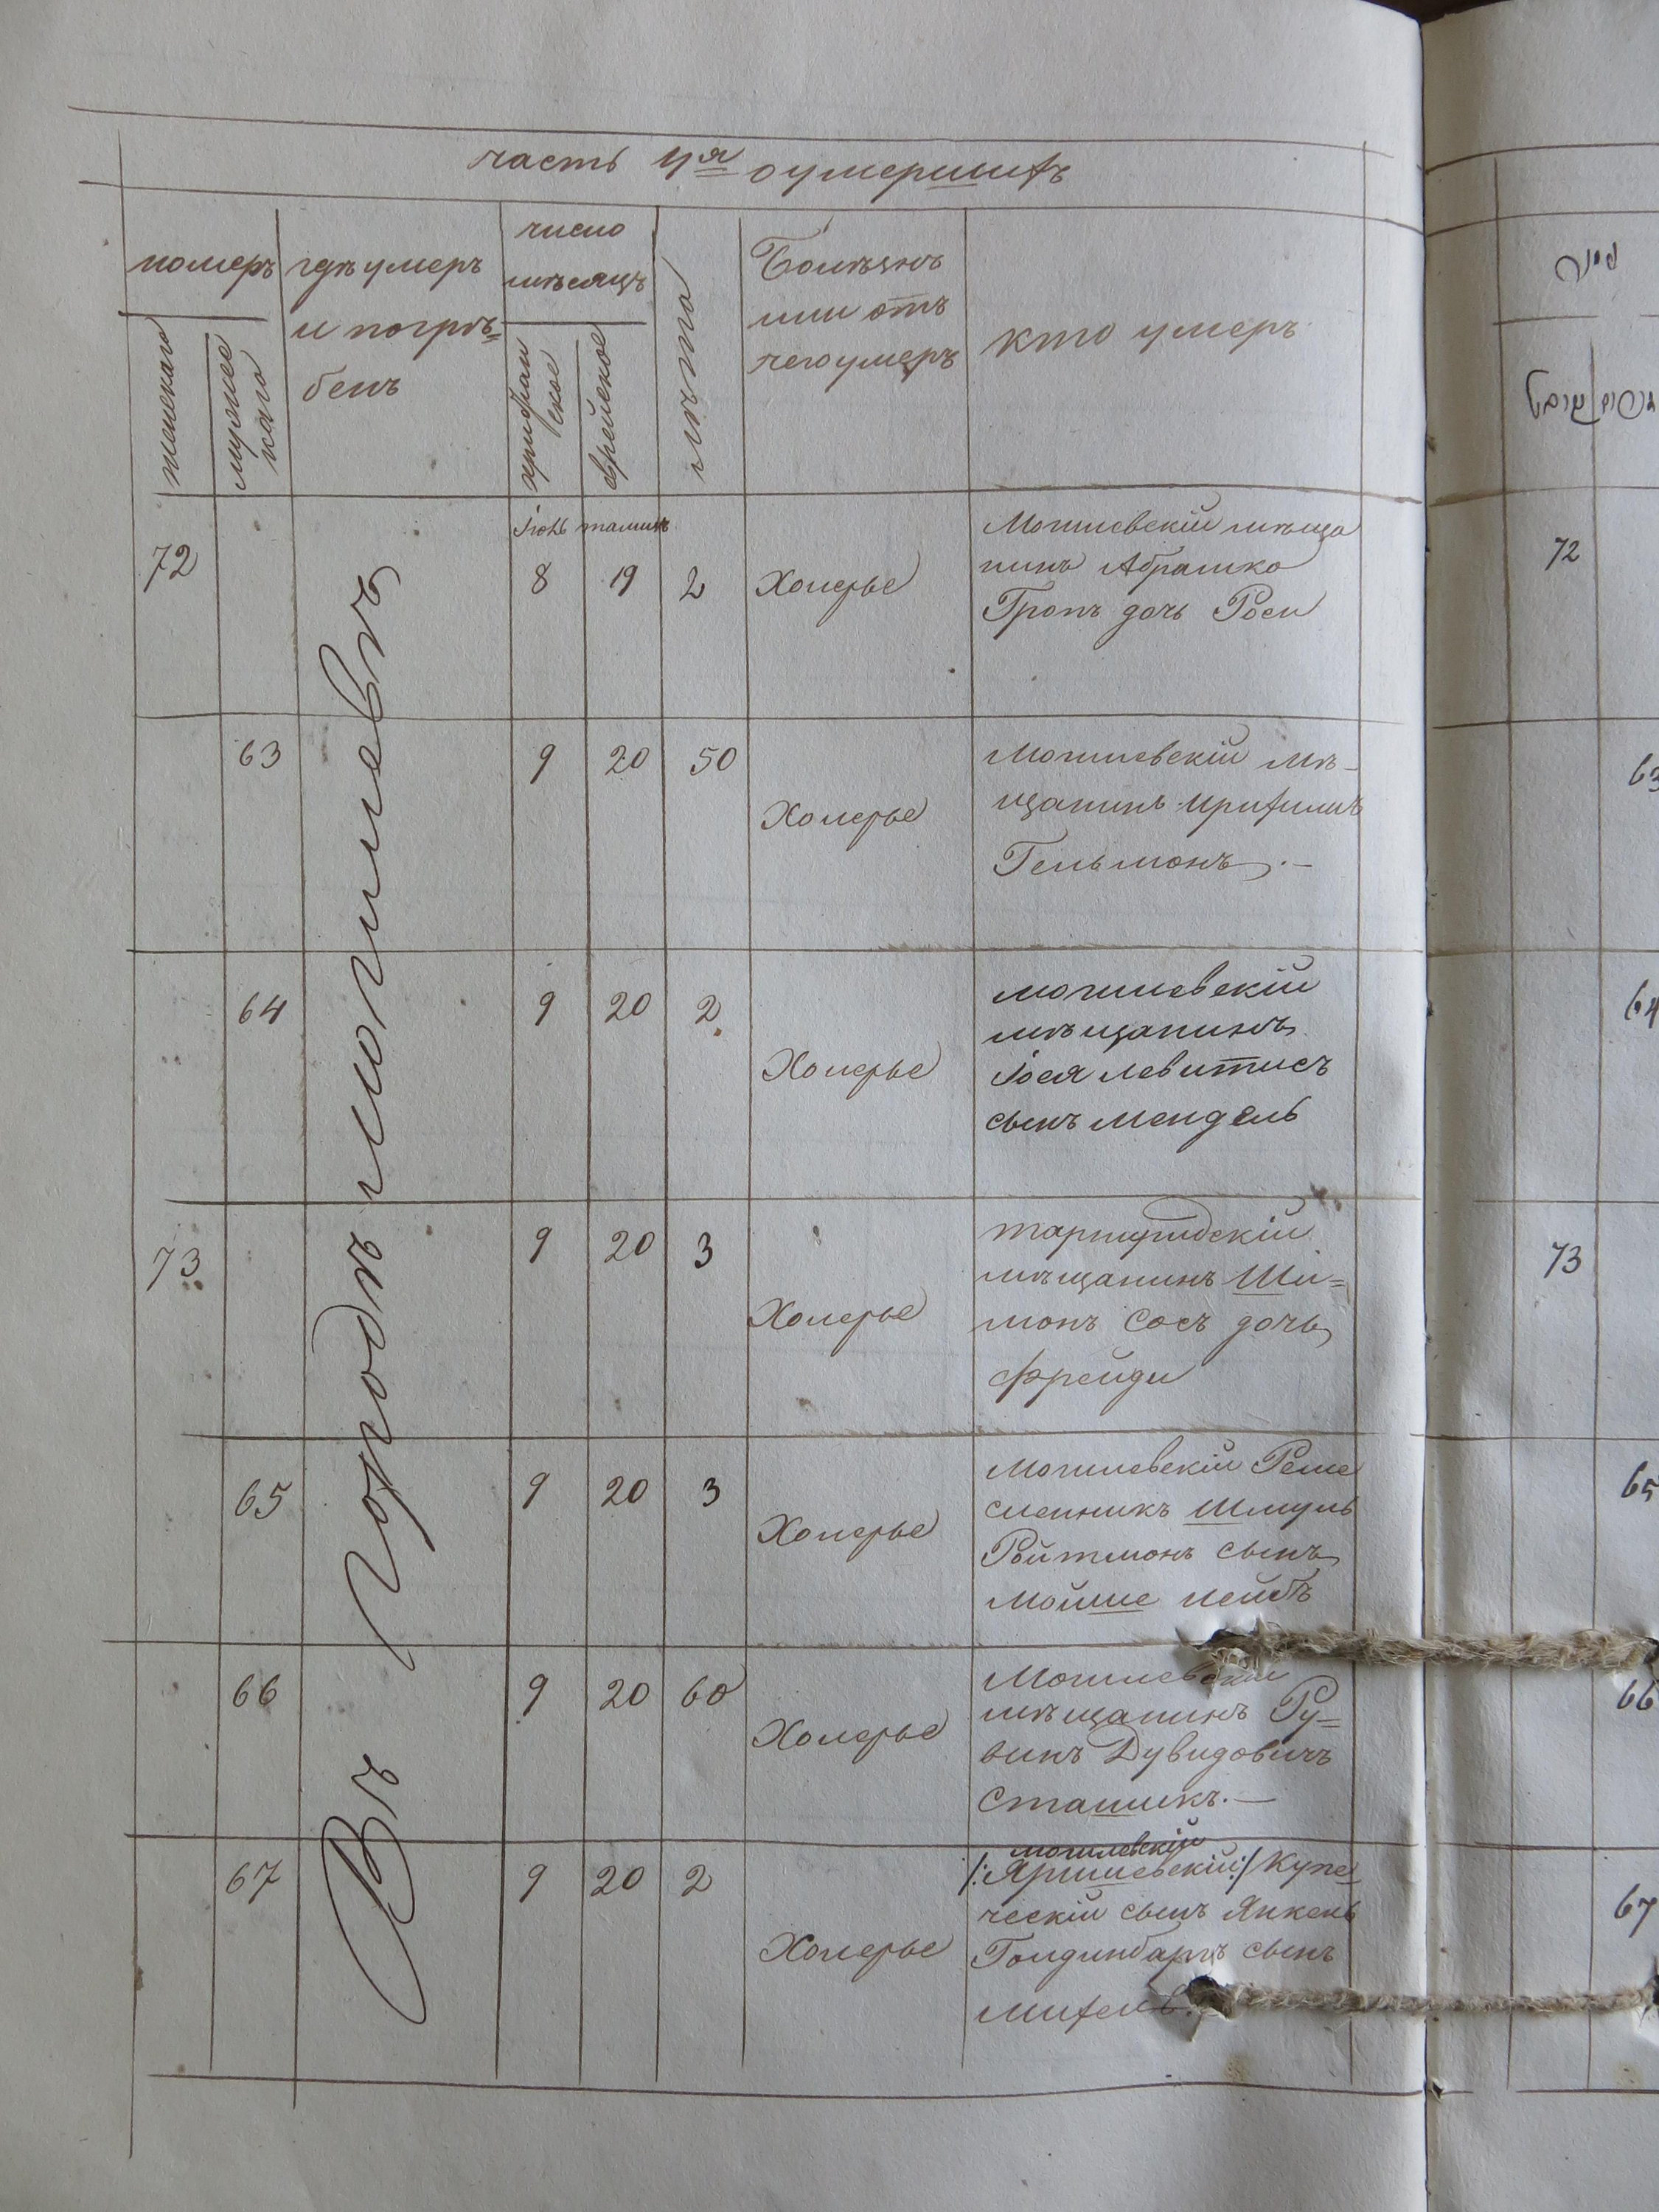 часть 4я о умершихъ
номеръ
женскаго
мужескаго
гдѣ умеръ
и погрѣ=
бенъ
число
мѣсяцъ
христианское
еврейское
лѣта
Болѣзнь
или отъ
чего умеръ
кто умеръ
72
Іюль тамизъ
8 19 2
Холерье
Могилевскій мѣща
нинъ Абрамко
Гропъ дочь Роси
63
9 20 50
Холерье
Могилевскій мѣ-
щанинъ
Гельмонъ.-
64
9 20 2
Холерье
могилевскій
мѣщанинъ
Іося левитисъ
сынъ мендель
73
9 20 3
Холерье
мѣщанинъ Ши=
монъ Сосъ дочь
фрейди
65
9 20 3
Холерье
Могилевскій Реме
сленникъ Шмуль
Ройтмонъ сынъ
мойше лейбъ
66
9 20 60
Холерье
Могилевскій
мѣщанинъ Ру=
винъ Дувидовичъ
Сташикъ.-
67
9 20 2
Холерье
могилевскій
/:Яришевскій:/ Купе
ческій сынъ Янкель
Голдинбаргъ сынъ
михель.
Въ городѣ могилевѣ
72
63
64
73
65
66
67